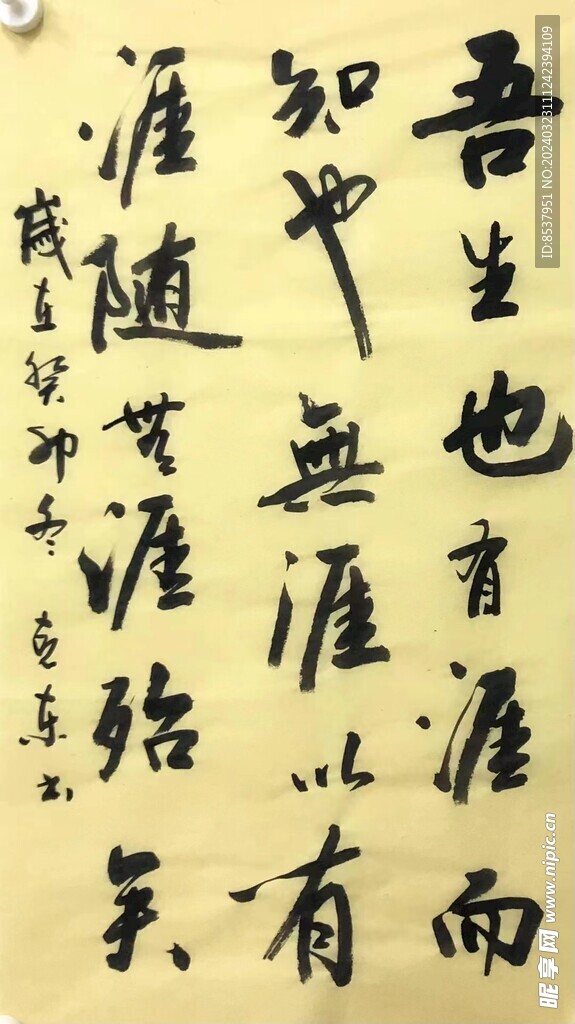 吾生也有涯而
知也無涯以有
涯随無涯殆矣
歲在癸卯冬 克東书
ID:8537951 NO:20240323111242394109
昵享网 www.nipic.cn